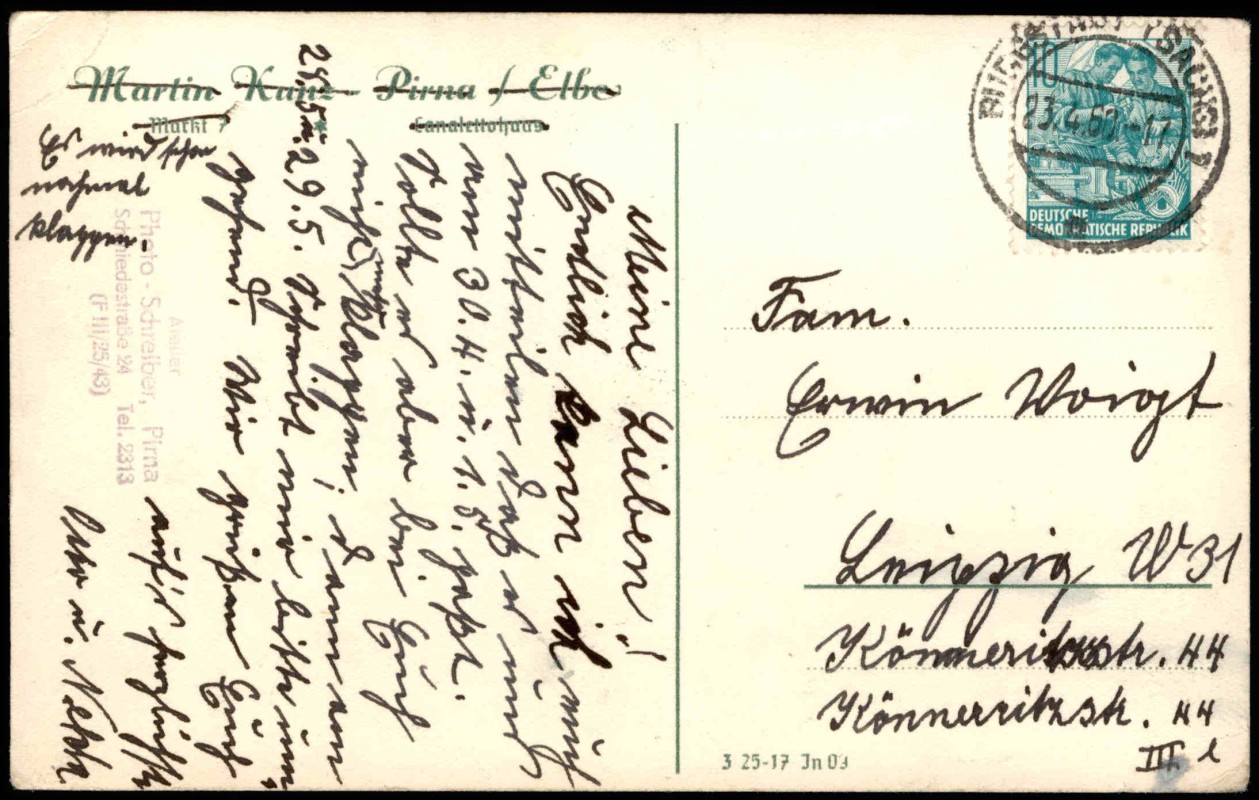 Martin Kunz - Pirna / Elbe
Markt 7 Canalettohaus
Meine Lieben!
Endlich kann ich euch
mitteilen daß es uns
am 30.4. u. 1.5. paßt.
Sollte es aber bei Euch
nicht mehr klappen, dann am
28.5. u. 29.5. Schreibt mir bitte um-
gehend. Wir grüßen Euch
auf's herzlichste
Otto u.
Es wird schon
nochmal
klappen.
Atelier
Photo - Schreiber, Pirna
Schmiedestraße 24 Tel. 2313
(F III/25/43)
BURGSTÄDT (SACHS) 1
23.4.60.-17
10
DEUTSCHE
DEMOKRATISCHE REPUBLIK
Fam.
Erwin Voigt
Leipzig W 31
Könneritzstr. 44
Könnerritzstr. 44
III l
3 25-17 Jn 09